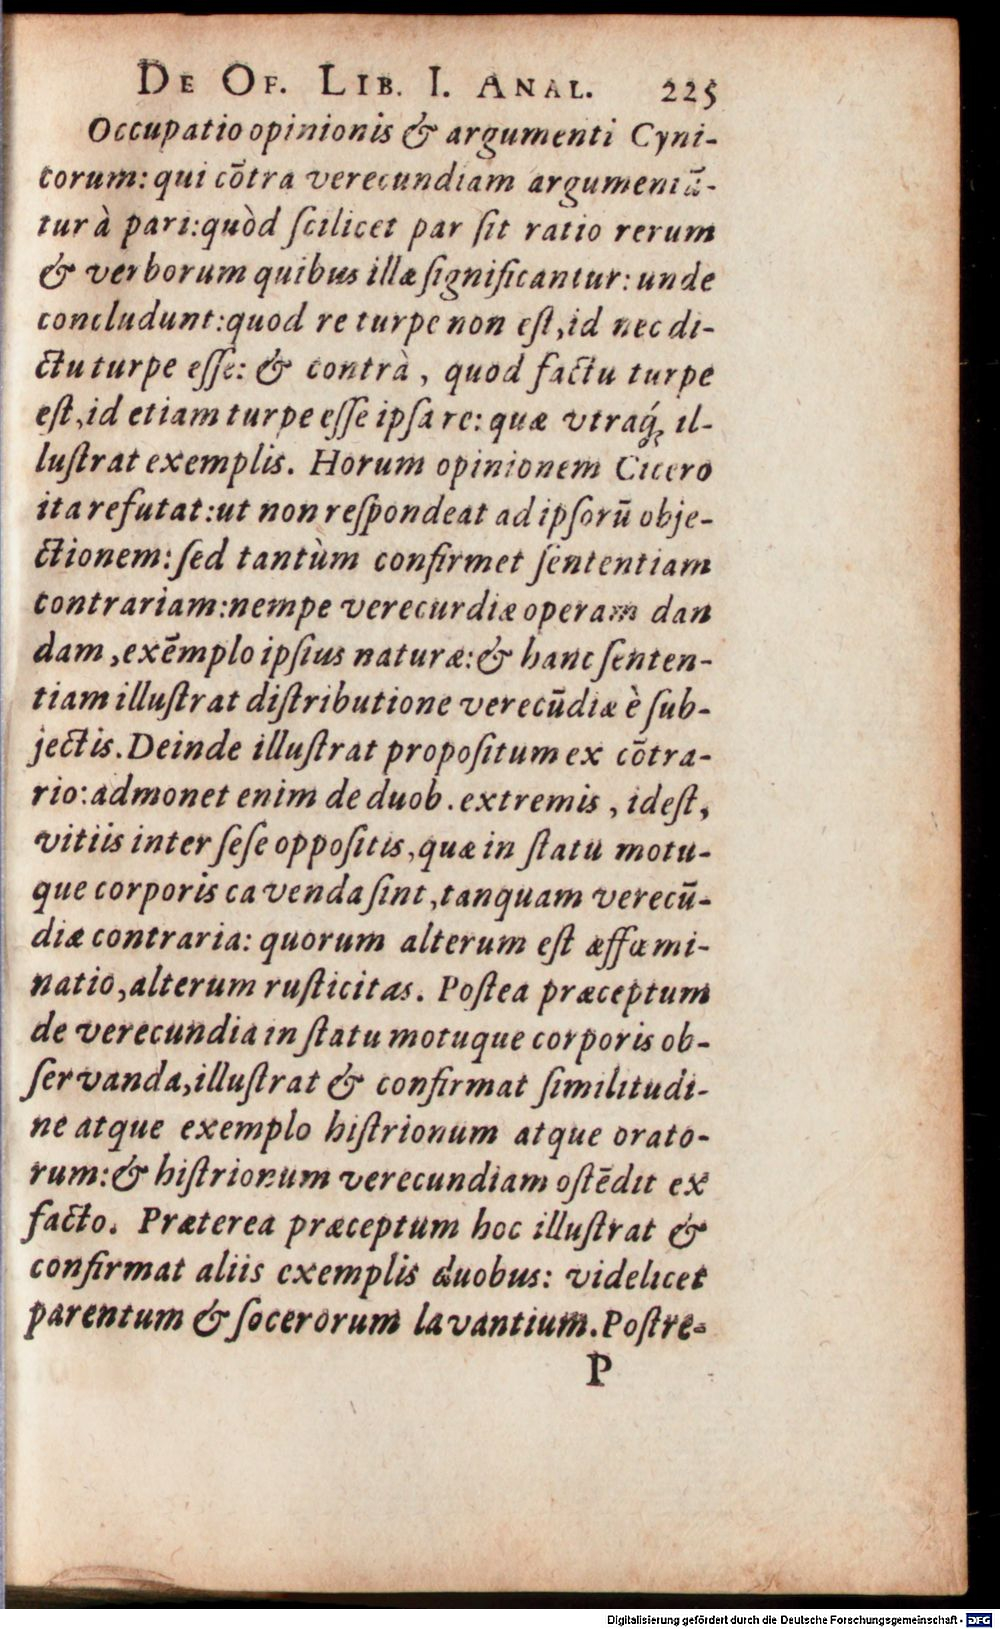 DE OF. LIB. I. ANAL. 225
Occupatio opinionis & argumenti Cyni-
corum: qui cōtra verecundiam argumentā-
tur à pari: quòd ſcilicet par ſit ratio rerum
& verborum quibus illæ ſignificantur: unde
concludunt: quod re turpe non eſt, id nec di-
ctu turpe eſſe: & contrà, quod factu turpe
eſt, id etiam turpe eſſe ipſa re: quæ vtraq́; il-
luſtrat exemplis. Horum opinionem Cicero
ita refutat: ut non reſpondeat ad ipſorū obje-
ctionem: ſed tantùm confirmet ſententiam
contrariam: nempe verecurdiæ operam dan
dam, exēmplo ipſius naturæ: & hanc ſenten-
tiam illuſtrat diſtributione verecūdiæ è ſub-
jectis. Deinde illuſtrat propoſitum ex cōtra-
rio: admonet enim de duob. extremis, ideſt,
vitiis inter ſeſe oppoſitis, quæ in ſtatu motu-
que corporis cavenda ſint, tanquam verecū-
diæ contraria: quorum alterum eſt æffœmi-
natio, alterum ruſticitas. Poſtea præceptum
de verecundia in ſtatu motuque corporis ob-
ſervanda, illuſtrat & confirmat ſimilitudi-
ne atque exemplo hiſtrionum atque orato-
rum: & hiſtrionum verecundiam oſtēdit ex
facto. Præterea præceptum hoc illuſtrat &
confirmat aliis exemplis duobus: videlicet
parentum & ſocerorum lavantium. Poſtre-
P
Digitalisierung gefördert durch die Deutsche Forschungsgemeinschaft - DFG